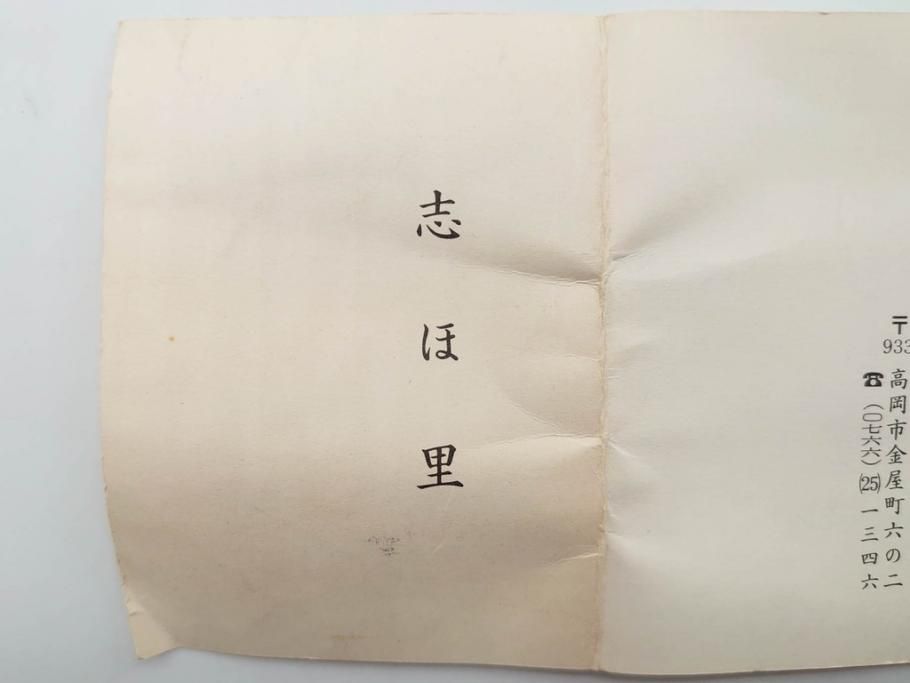 〒933
高岡市金屋町六の二
☎(〇七六六)(25)一三四六
志ほ里